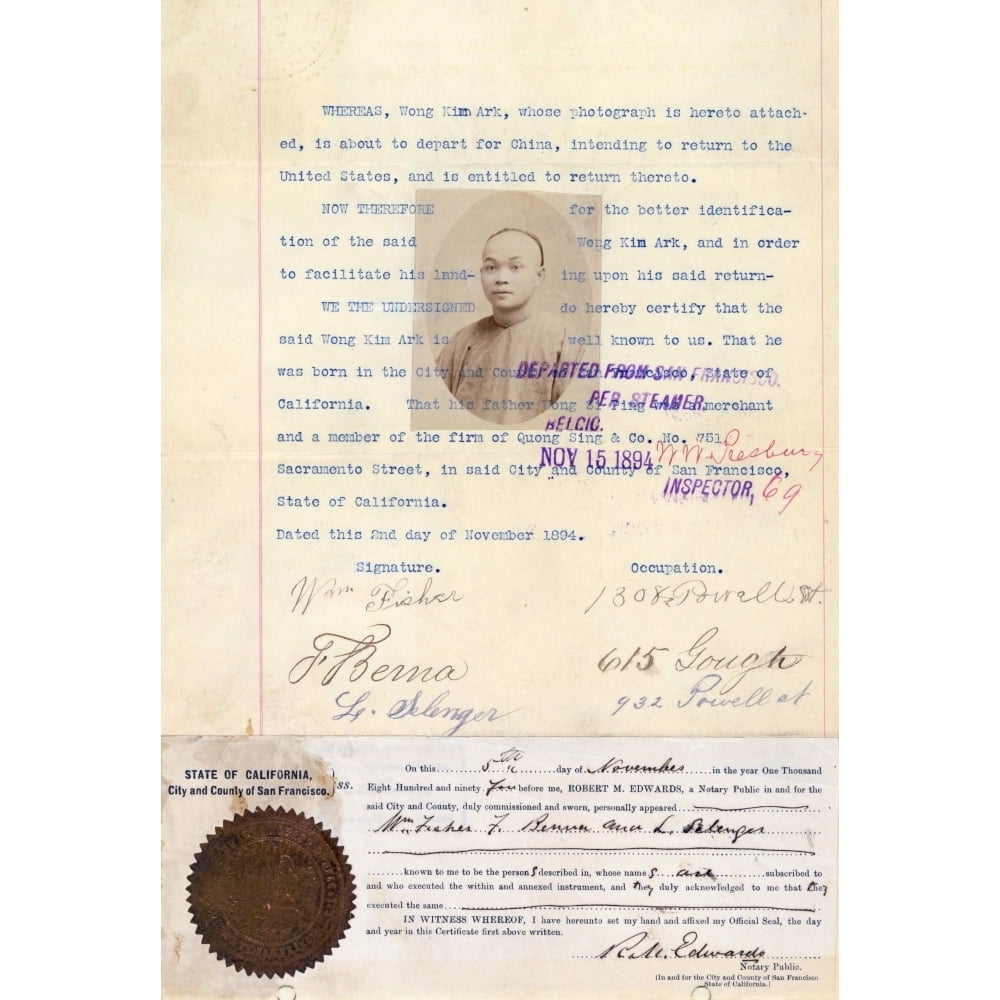 WHEREAS, Wong Kim Ark, whose photograph is hereto attach-
ed, is about to depart for China, intending to return to the
United States, and is entitled to return thereto.
NOW THEREFORE for the better identifica-
tion of the said Wong Kim Ark, and in order
to facilitate his land- ing upon his said return-
WE THE UNDERSIGNED do hereby certify that the
said Wong Kim Ark is well known to us. That he
was born in the City and County of San Francisco, State of
California. That his father Wong Si Ping was a merchant
and a member of the firm of Quong Sing & Co. No. 751
Sacramento Street, in said City and County of San Francisco,
State of California.
DEPARTED FROM SAN FRANCISCO.
PER STEAMER,
BELGIC.
NOV 15 1894
INSPECTOR, 69
Dated this 2nd day of November 1894.
Signature. Occupation.
Wm Fisher 1308 Powell St.
F Berna 615 Gough
L. Selenger 932 Powell st
STATE OF CALIFORNIA,
City and County of San Francisco. ss.
On this 5th day of November in the year One Thousand
Eight Hundred and ninety four before me, ROBERT M. EDWARDS, a Notary Public in and for the
said City and County, duly commissioned and sworn, personally appeared
Wm Fisher F. Berna and L. Selenger
known to me to be the persons described in, whose names are subscribed to
and who executed the within and annexed instrument, and they duly acknowledged to me that they
executed the same
IN WITNESS WHEREOF, I have hereunto set my hand and affixed my Official Seal, the day
and year in this Certificate first above written.
R. M. Edwards
Notary Public.
(In and for the City and County of San Francisco
State of California.)